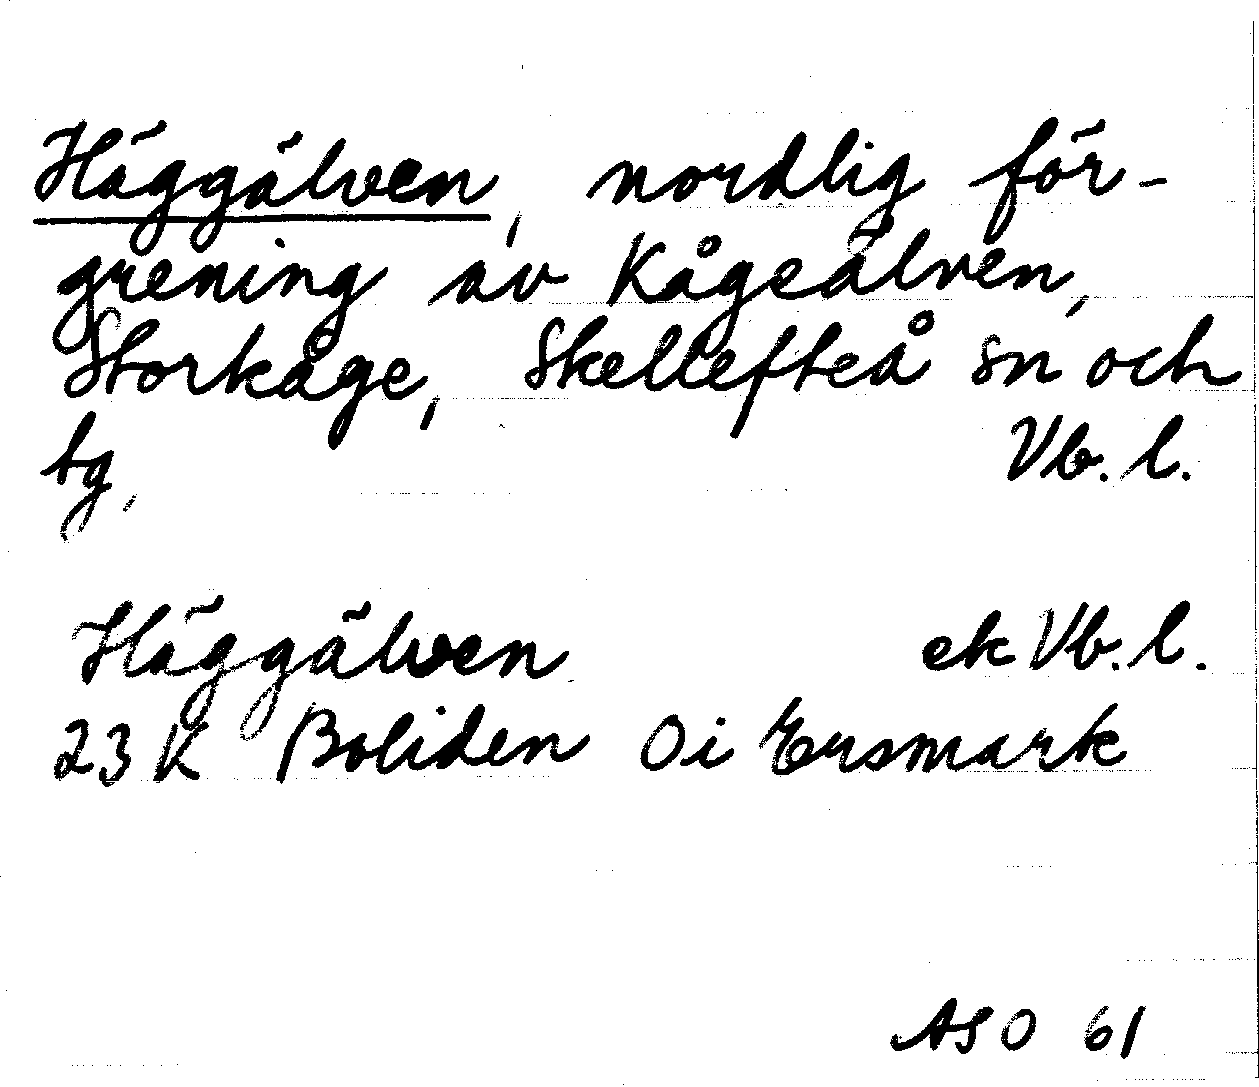 Häggälven, nordlig för-
grening av Kågeälven,
Storkåge, Skellefteå sn och
tg, Vb. l.
Häggälven ek Vb. l.
23 K Boliden Oi Ersmark
ASO 61